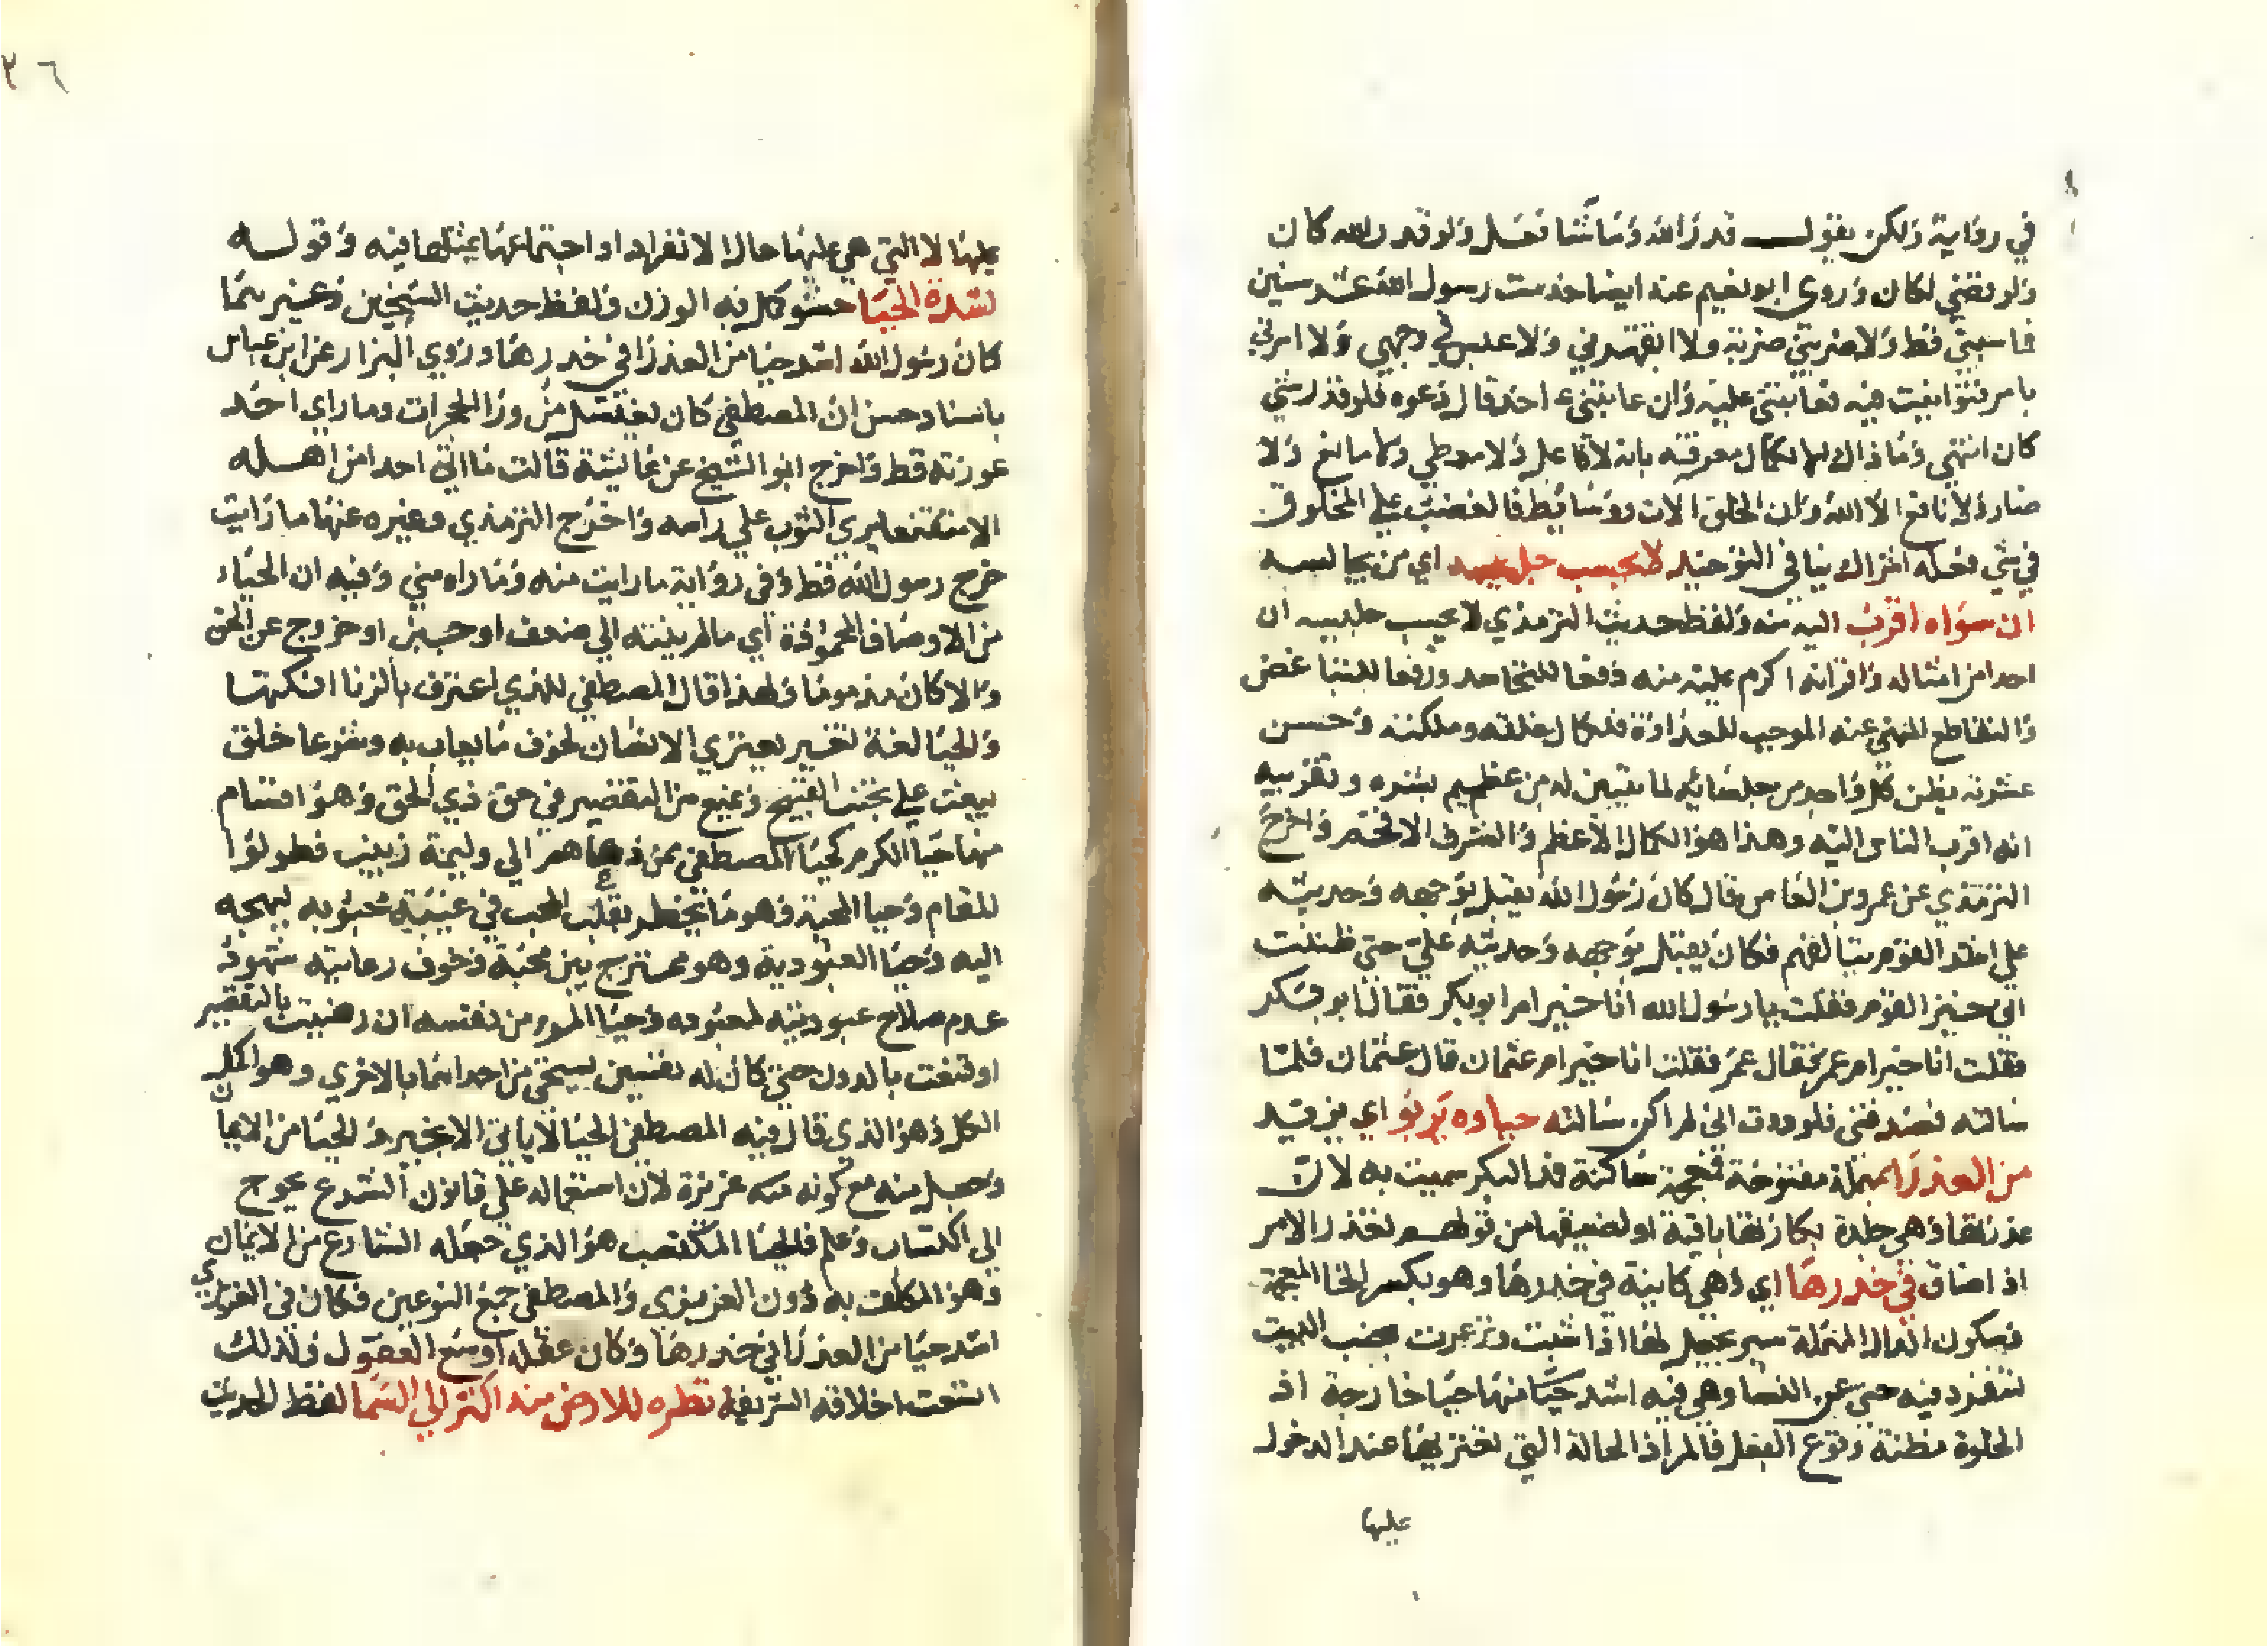 في رواية ولكن يقول قدر الله وما شا فعل ولو قدر الله كان
ولو قضي لكان وروى ابو نعيم عنه ايضا خدمت رسول الله عشر سنين
فما سبني قط ولا ضربني ضربة ولا انتهرني ولا عبس في وجهي ولا امرني
بامر فتوانيت فيه فعاتبني عليه وان عاتبني احد قال دعوه فلو قدر شي
كان انتهي وما ذاك الا لكمال معرفته بانه لا فاعل ولا معطي ولا مانع ولا
ضار ولا نافع الا الله وان الخلق الات ووسايط فالغضب علي المخلوق
في شي فعله اشراك ينافي التوحيد لا يحسب جليسه اي من يجالسه
ان سواه اقرب اليه منه ولفظ حديث الترمذي لا يحسب جليسه ان
احدا من امثاله واقرانه اكرم عليه منه دفعا للتحاسد ورفعا للتباغض
والتقاطع المنهي عنه الموجب للعداوة فلكمال خلقه وملكته وحسن
عشرته يظن كل واحد من جلسائه لما يتبين له من عظيم بشره وتقريبه
انه اقرب الناس اليه وهذا هو الكمال الاعظم والشرف الافخم واخرج
الترمذي عن عمرو بن العاص قال كان رسول الله يقبل بوجهه وحديثه
علي اشر القوم يتالفهم فكان يقبل بوجهه وحديثه علي حتي ظننت
اني خير القوم فقلت يا رسول الله انا خير ام ابو بكر فقال ابو بكر
فقلت انا خير ام عمر فقال عمر فقلت انا خير ام عثمان قال عثمان فلما
سالته فصدقني فلوددت اني لم اكن سالته حياوه يربو اي يزيد
من العذرا بمهملة مفتوحة فمعجمة ساكنة فرا البكر سميت به لان
عذرتها وهي جلدة بكارتها باقية او لضيقها من قولهم تعذر الامر
اذا ضاق في خدرها اي وهي كاينة في خدرها وهو بكسر الخا المعجمة
وسكون الدال المهملة ستر يجعل لها اذا شبت وترعرعت بجنب البيت
تنفرد فيه حتي عن النسا وهي فيه اشد حيا منها حيا خارجة اذ
الخلوة مظنة وقوع الفعل فالمراد الحالة التي تعتريها عند الدخول
عليها
٣٦
عليها لا التي هي عليها حال الانفراد او اجتماعها بمثلها فيه وقوله
لشدة الحيا حشو كمل به الوزن ولفظ حديث الشيخين وغيرهما
كان رسول الله اشد حيا من العذرا في خدرها وروي البزار عن ابن عباس
باسناد حسن ان المصطفي كان يغتسل من ورا الحجرات وما راي احد
عورته قط واخرج ابو الشيخ عن عايشة قالت ما اتي احدا من اهله
الا متقنعا يرخي الثوب علي راسه واخرج الترمذي وغيره عنها ما رايت
فرج رسول الله قط وفي رواية ما رايت منه وما راه مني وفيه ان الحياء
من الاوصاف المحمودة اي ما لم ينته الي ضعف او جبن او خروج عن الحق
والا كان مذموما ولهذا قال المصطفي للذي اعترف بالزنا انكتها
والحيا لغة تغير يعتري الانسان لخوف ما يعاب به وشرعا خلق
يبعث علي تجنب القبيح ويمنع من التقصير في حق ذي الحق وهو اقسام
منها حيا الكرم كحيا المصطفي ممن دعاهم الي وليمة زينب فطولوا
المقام وحيا المحبة وهو ما يخطر بقلب المحب في غيبة محبوبه ليهيجه
اليه وحيا العبودية وهو ممتزج بين محبة وخوف رعايته شهود
عدم صلاح عبوديته لمعبوده وحيا المرء من نفسه ان رضيت بالتقصير
او قنعت بالدون حتي كان له نفسين يستحي من احداهما بالاخري وهو اكمل
الكل وهو الذي قال فيه المصطفي الحيا لا ياتي الا بخير والحيا من الايمان
وجعل منه مع كونه منه غريزة لان استعماله علي قانون الشرع يحوج
الي اكتساب وعلم فالحيا المكتسب هو الذي جعله الشارع من الايمان
وهو المكلف به دون الغريزي والمصطفي جمع النوعين فكان في الغريزي
اشد حيا من العذرا في خدرها وكان عقله اوسع العقول ولذلك
اتسعت اخلاقه الشريفة نظره للارض منه اكثر الي السما لفظ الحديث